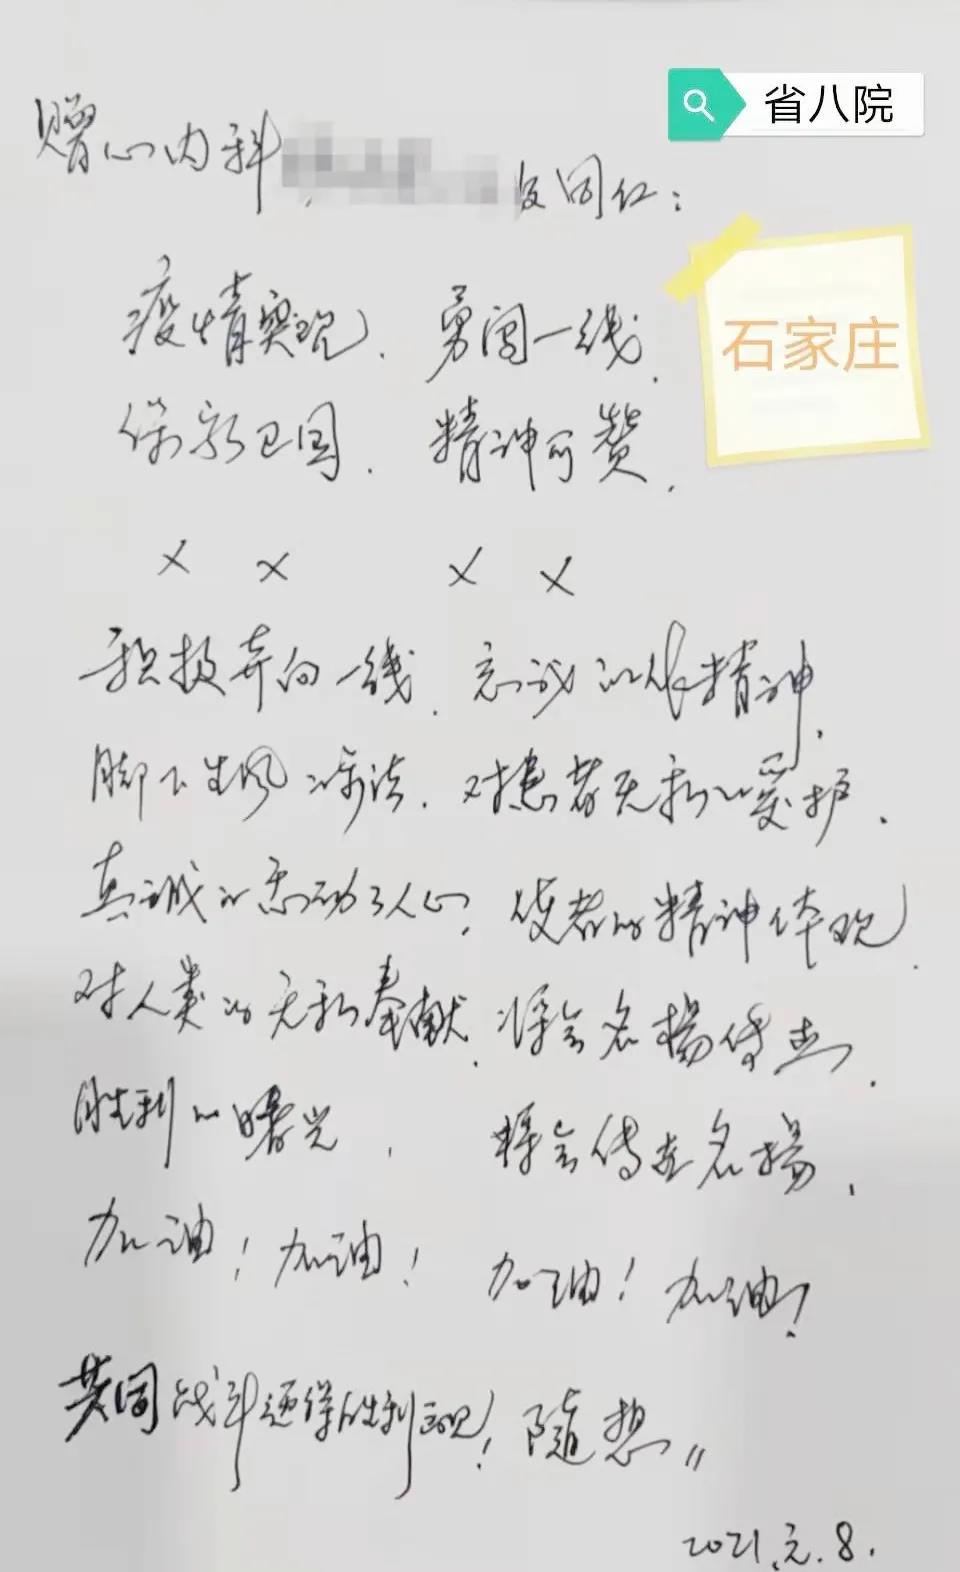 省八院
赠心内科 及同仁：
石家庄
疫情突现，勇闯一线，
保家卫国，精神可赞，
× × × ×
积极奔向一线，忘我的 精神，
脚下生风 ，对患者无私的爱护，
真诚的 动了人心，使者的精神体现，
对人类的无私奉献，将会名扬传 ，
胜利的曙光，将会传 名扬，
加油！加油！加油！加油！
共同战斗迎得胜利 ！随想〃
2021.元.8.